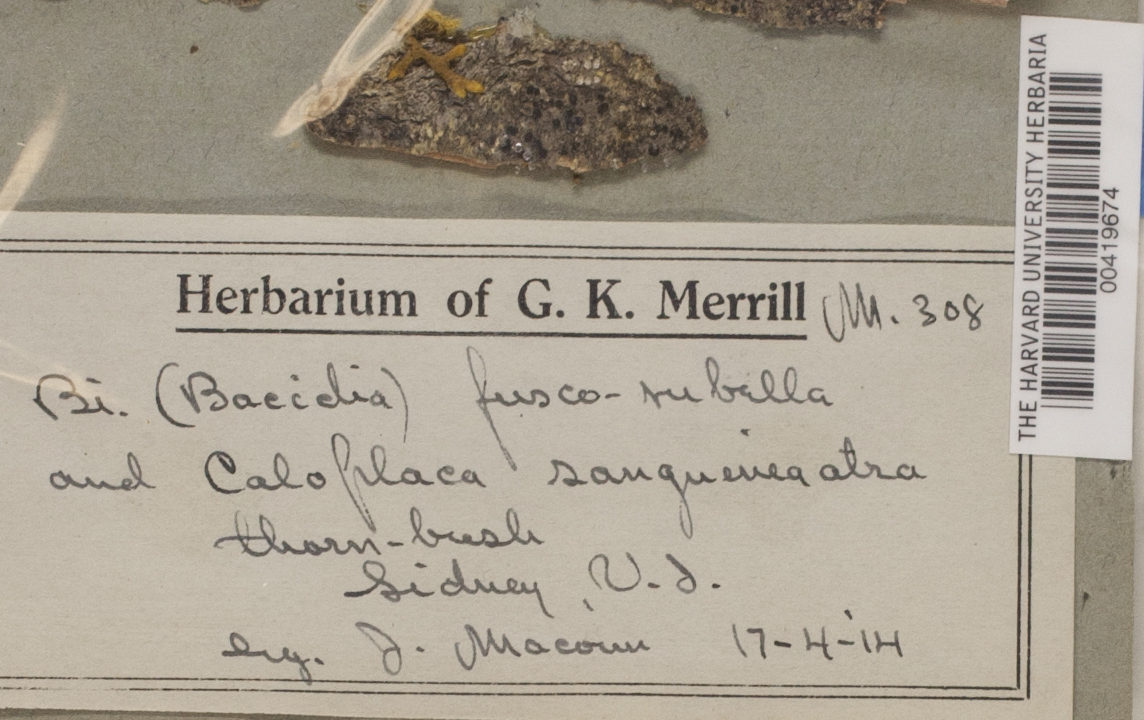 Herbarium of G. K. Merrill M. 308
Bi. (Bacidia) fusco-rubella
and Caloplaca sanguineaatra
thorn-bush
Sidney, V. I.
Leg. J. Macoun 17-4-14
THE HARVARD UNIVERSITY HERBARIA
00419674